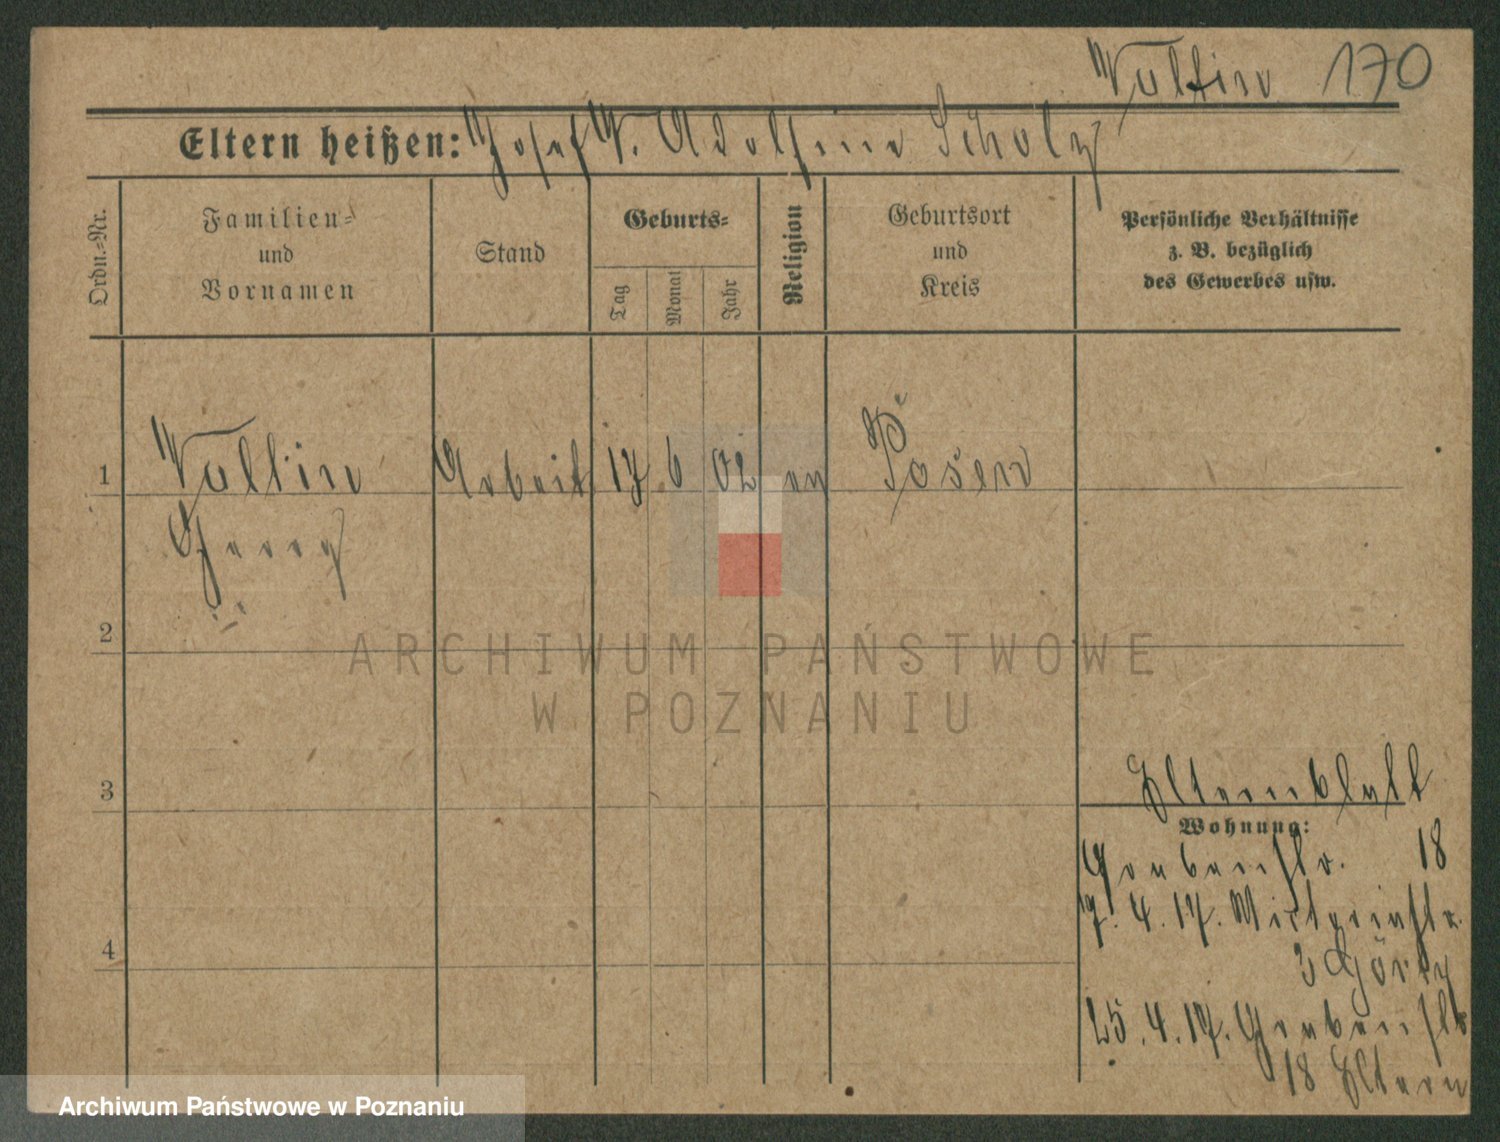 Valtin 170
Eltern heißen: Josef V. Adolfine Scholz
Ordn.=Nr.
Familien=
und
Vornamen
Stand
Geburts=
Tag
Monat
Jahr
Religion
Geburtsort
und
Kreis
Persönliche Verhältnisse
z. B. bezüglich
des Gewerbes usw.
1 Valtin Arbeit 17 6 02 ev Posen
Georg
2
3
4
Elternblatt
Wohnung:
Grabenstr. 18
7. 4. 17. Victoriastr.
3 Görtz
25. 4. 17. Grabenstr
18 Eltern
ARCHIWUM PAŃSTWOWE
W POZNANIU
Archiwum Państwowe w Poznaniu